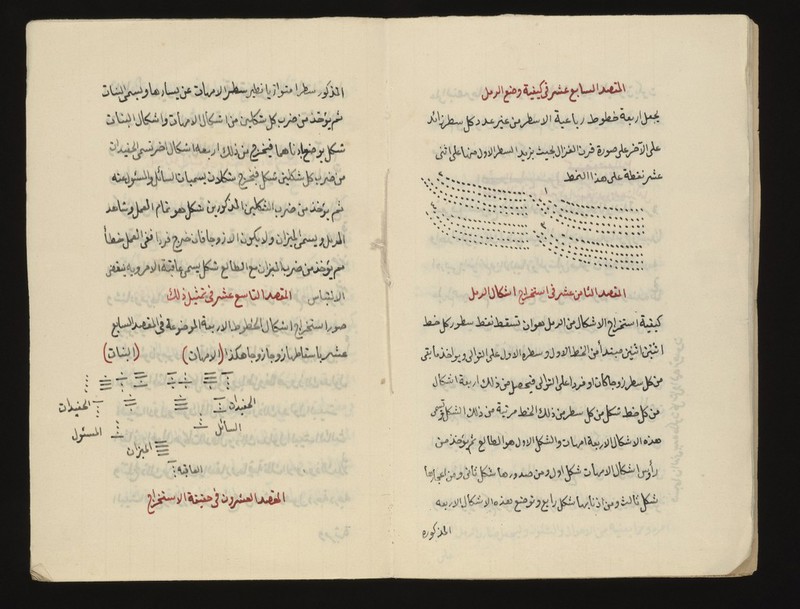 المقصد السابع عشر فى كيفية وضع الرمل
يجعل اربعة خطوط رباعية الاسطر من غير عدد كل سطر زائد
على الآخر على صورة قرن الغزال بحيث يزيد السطر الاول منها على اثنى
عشر نقطة على هذا النمط
المقصد الثامن عشر فى استخراج اشكال الرمل
كيفية استخراج الاشكال من الرمل هو ان تسقط نقط سطور كل خط
اثنين اثنين مبتدأ من الخط الاول وسطره الاول على التوالى ويؤخذ ما بقى
من كل سطر زوجا كان او فردا على التوالى فيحصل من ذلك اربعة اشكال
من كل خط شكل من كل سطر من ذلك الخط مرتبة من ذلك الشكل وتسمى
هذه الاشكال الاربعة امهات والشكل الاول هو الطالع ثم يؤخذ من
رأوس اشكال الامهات شكل اول ومن صدورها شكل ثانى ومن اعجازها
شكل ثالث ومن اذنابها شكل رابع وتوضع هذه الاشكال الاربعه
المذكوره
المذكور سطرا متوازيا نظير سطر الامهات عن يسارها ويسمى البنات
ثم يؤخذ من ضرب كل شكلين من اشكال الامهات واشكال البنات
شكل يوضع ادناهما فيخرج من ذلك اربعه اشكال اخر تسمى الحفيدات
من ضرب كل شكلين شكل فيخرج شكلان يسميان السائل والمسئول عنه
ثم يؤخذ من ضرب الشكلين المذكورين شكل هو تمام العمل وشاهد
الرمل ويسمى الميزان ولا يكون الا زوجا فان خرج فردا ففى العمل خطأ
ثم يؤخذ من ضرب الميزان مع الطالع شكل يسمى عاقبة الامر وبه ينقضى
الالتباس المقصد التاسع عشر فى تمثيل ذلك
صور استخراج اشكال الخطوط الاربعة الموضوعة فى المقصد السابع
عشر باسقاطها زوجا زوجا هكذا (الامهات) (البنات)
الحفيدات الحفيدات
السائل المسئول
الميزان
العاقبه
المقصد العشرون فى حقيقة الاستخراج